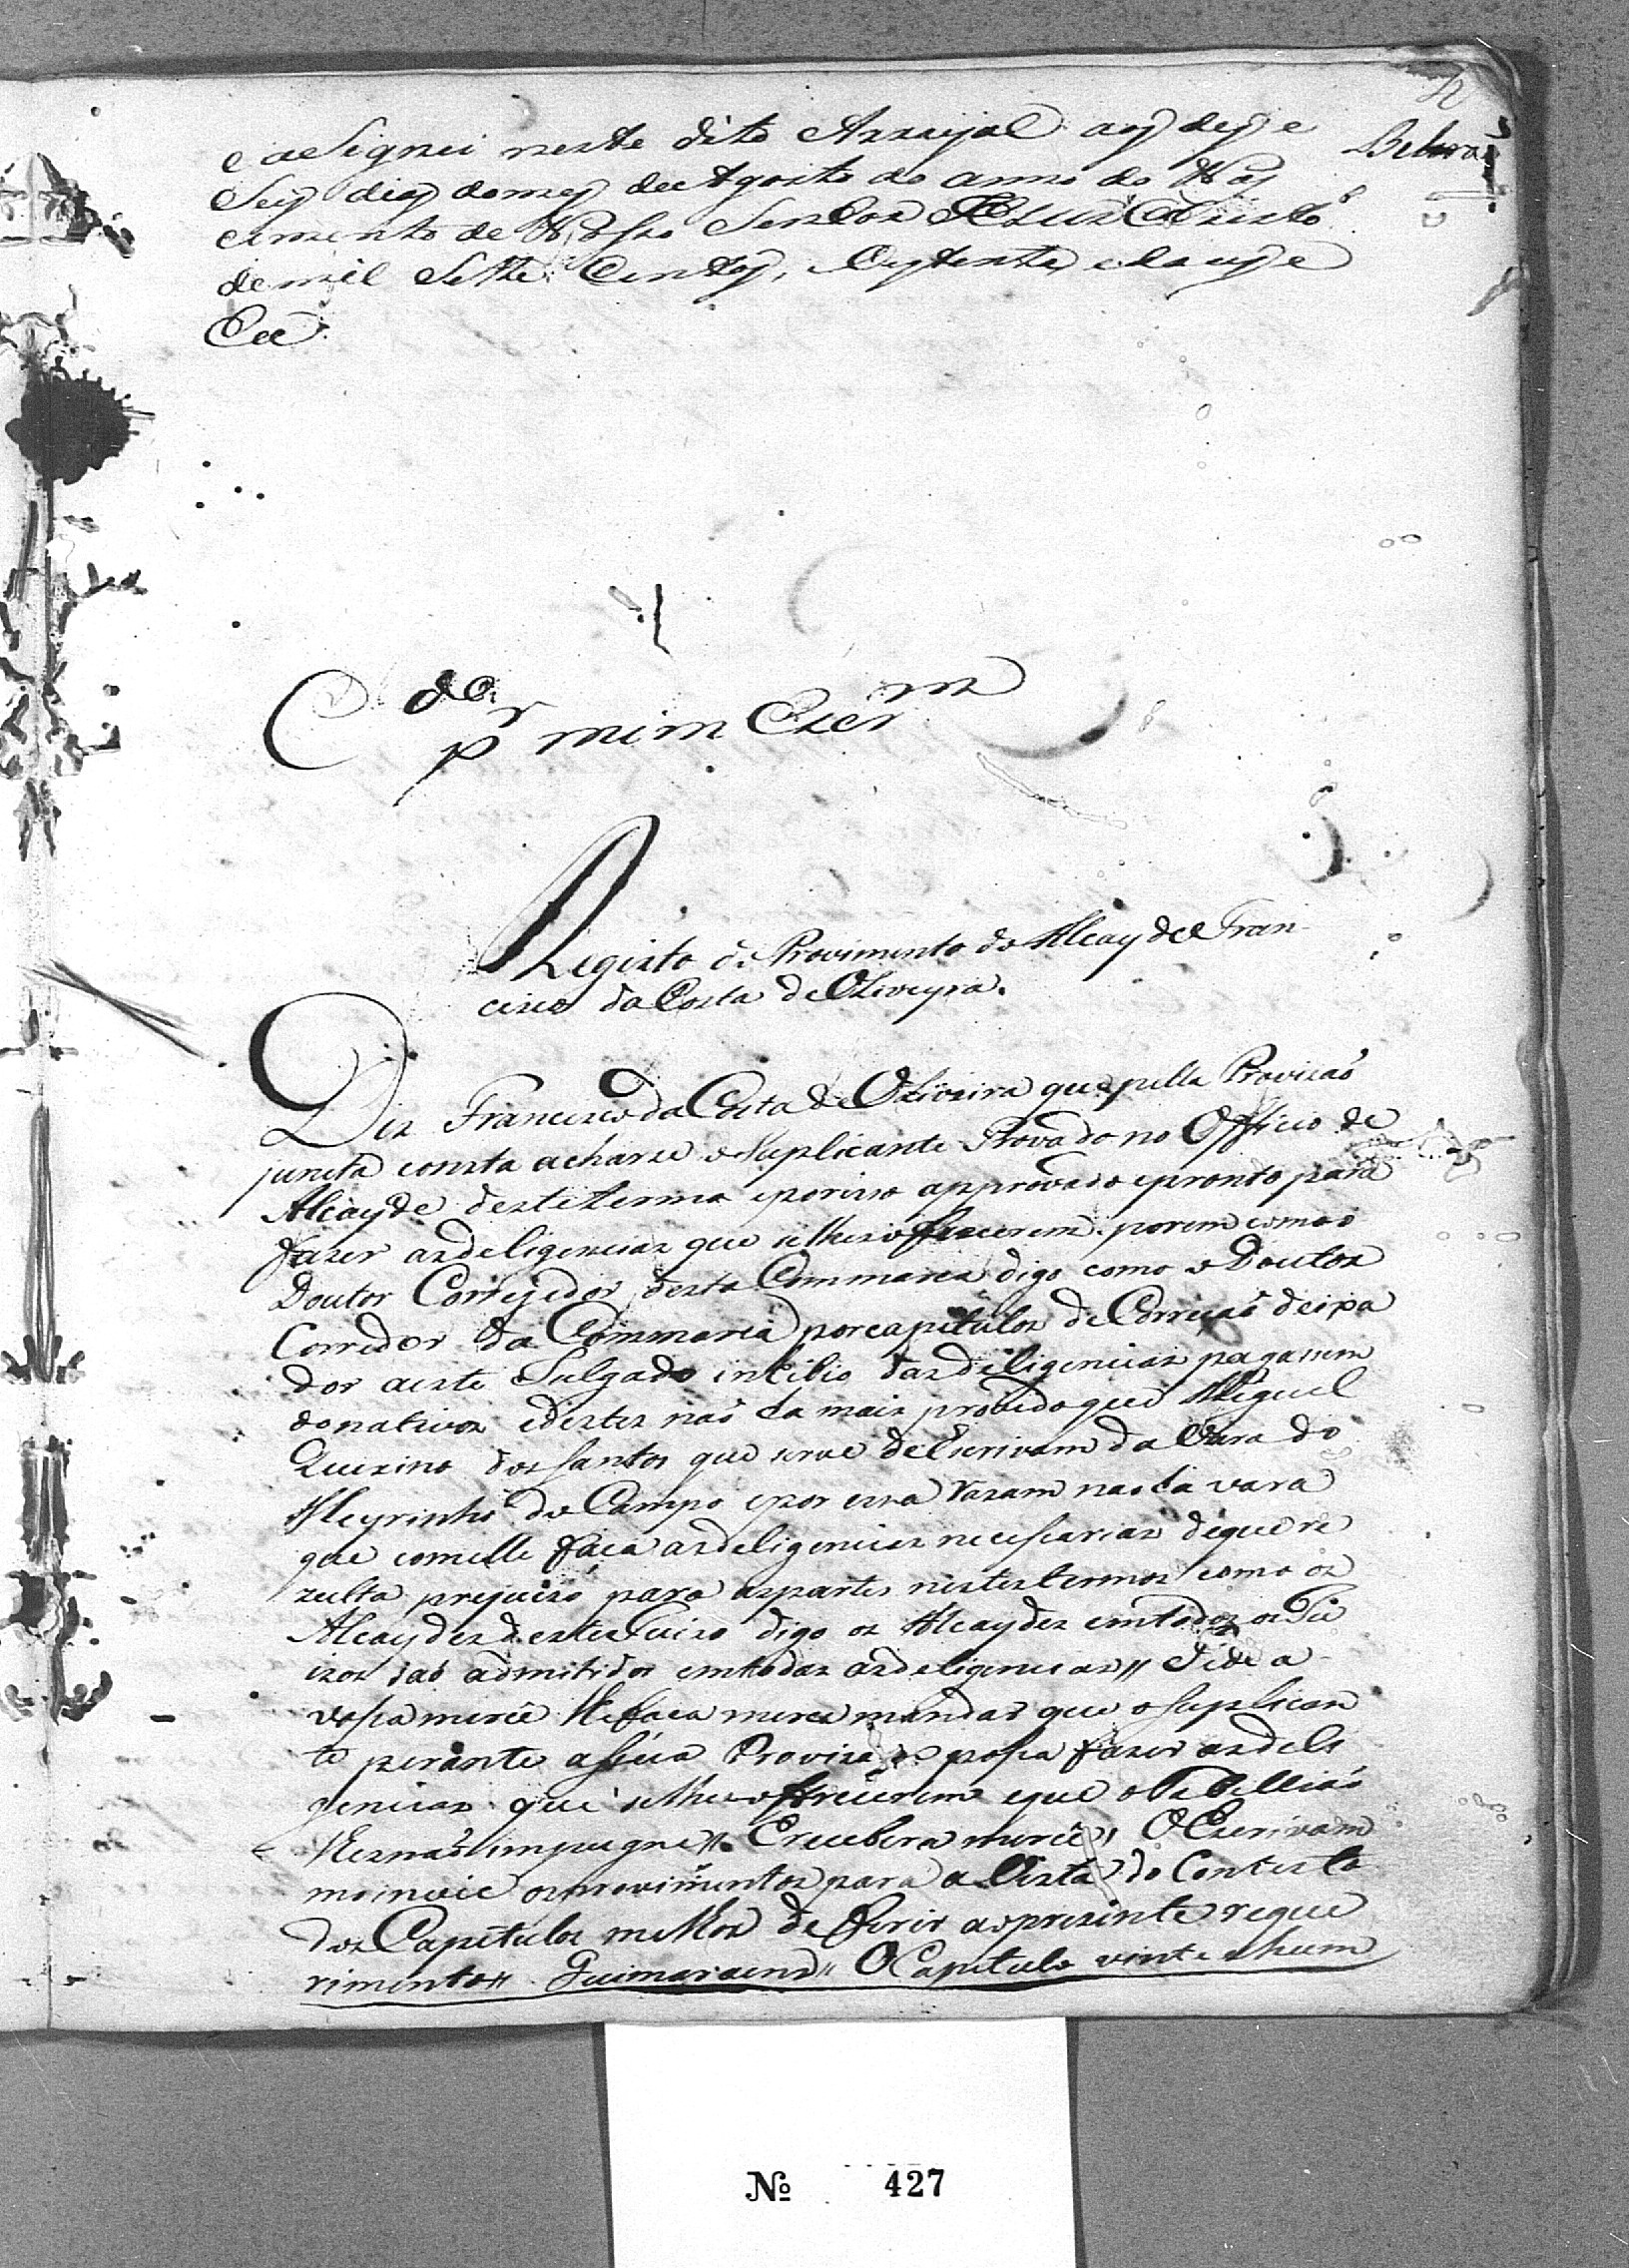 e aSignei neste dito Arrayal aos des e
Seis dias do mes de Agosto do anno do Nas
cimento de Nosso Senhor Christo
de mil Sette Centos, Oytenta e
C do
pr mim Escr m
Registo do Provimento do Alcayde Fran-
cisco da Costa de Oliveyra.
Diz Francisco da Costa de Oliveira que pella Provizaõ
juncta consta acharse o Suplicante Provado no Officio de
Alcayde deste termo e por isso approvado e pronto para
fazer as deligencias que se lhe offrecerem porem como o
Doutor Corregedor desta Commarca digo como o Doutor
Corredor da Commarca por capitulos de Correçaõ
aeste Julgado das deligencias pagassem
donativos e destes naõ ha mais provido que Miguel
dos Santos que serve de Escrivam da Vara do
Meyrinho do Campo e por essa razam naõ ha vara
que com elle faça as deligencias necessarias de que re
zulta prejuizo para as partes nestes termos como os
Alcaydes deste Juizo digo os Alcaydes em todos os Ju
izos saõ admitidos em todas as deligencias // Pede a
vossa merce lhe faça merce mandar que o suplican
te perante a sua Proviza possa fazer as deli
gencias que se lhe offrecerem e que o Tabelliaõ
lhe naõ impugne // E recebera merce // O Escrivam
me invie os provimentos para a Vista do Contesto
dos Capitulos milhor deferir ao prezente reque
rimento // Guimaraens // O Capitulo vinte e hum
No 427